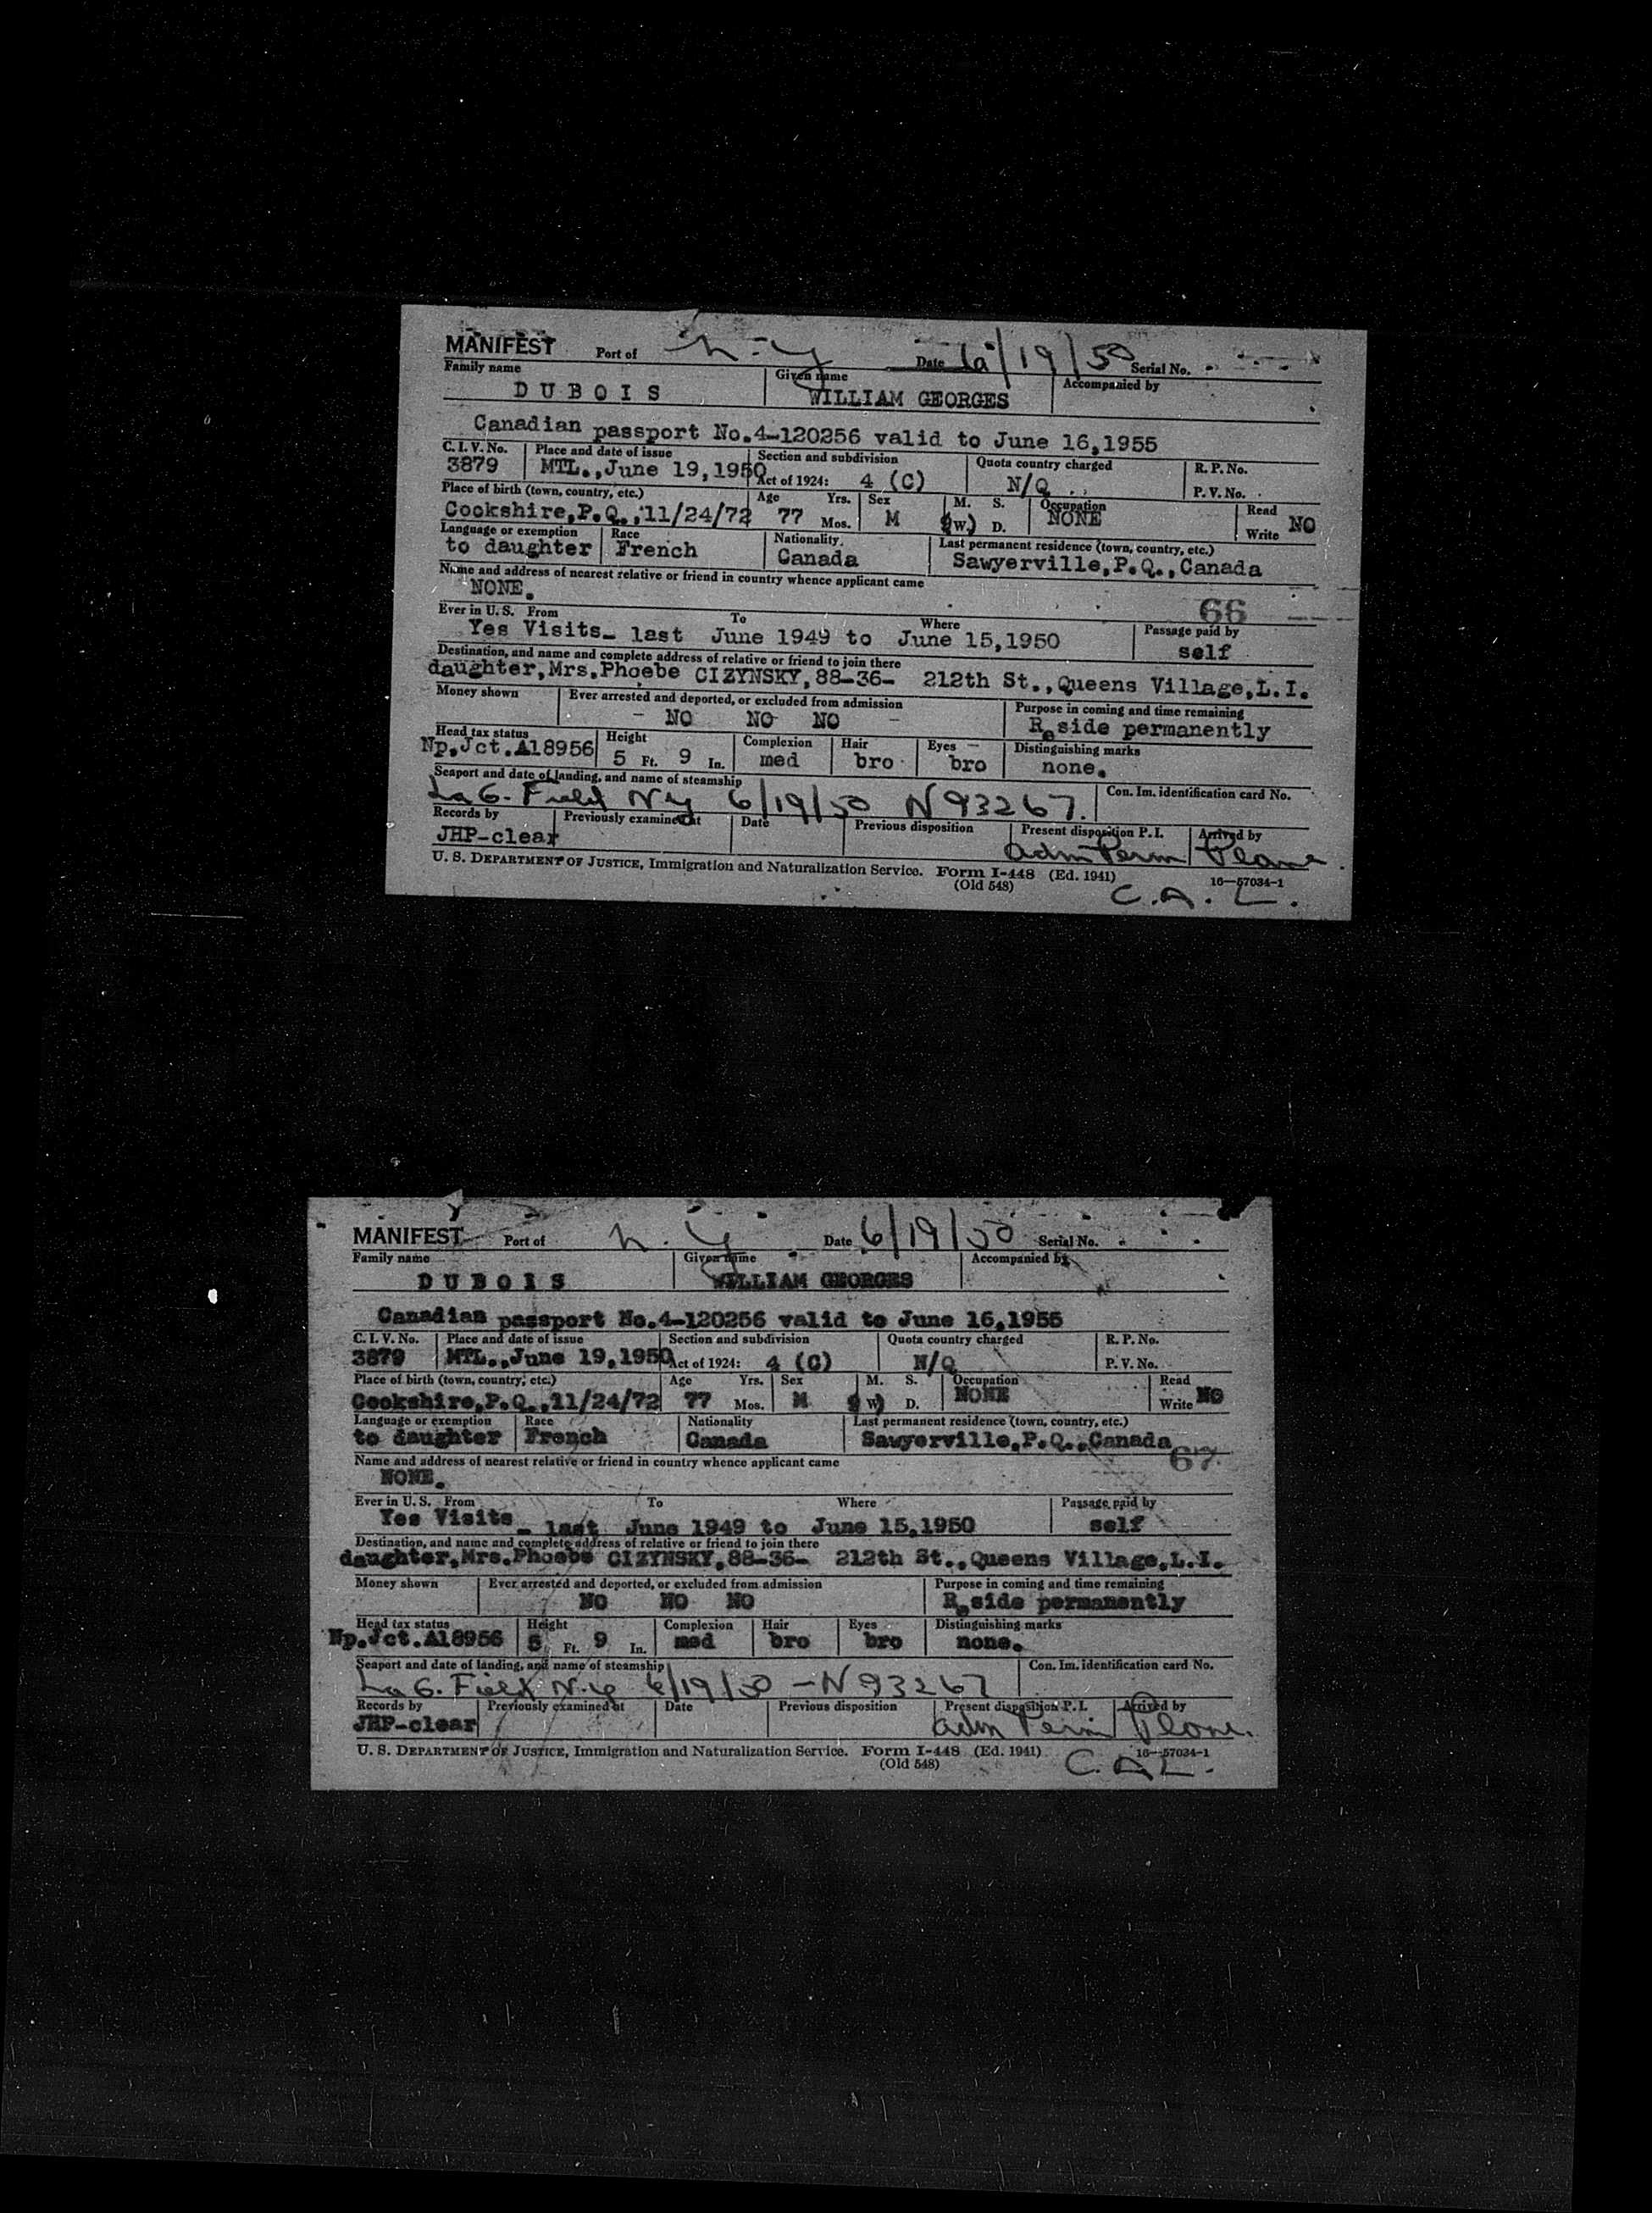 MANIFEST Port of N.Y Date 6/19/50 Serial No.
Family name Given name Accompanied by
DUBOIS WILLIAM GEORGES
Canadian passport No.4-120256 valid to June 16,1955
C. I. V. No. Place and date of issue Section and subdivision Quota country charged R. P. No.
3879 MTL.,June 19,1950 Act of 1924: 4 (C) N/Q P. V. No.
Place of birth (town, country, etc.) Age Yrs. Sex M. S. Occupation Read
Cookshire,P.Q.,11/24/72 77 Mos. M (W) D. NONE Write NO
Language or exemption Race Nationality Last permanent residence (town, country, etc.)
to daughter French Canada Sawyerville,P.Q.,Canada
Name and address of nearest relative or friend in country whence applicant came
NONE.
66
Ever in U. S. From To Where Passage paid by
Yes Visits- last June 1949 to June 15,1950 self
Destination, and name and complete address of relative or friend to join there
daughter,Mrs.Phoebe CIZYNSKY,88-36- 212th St.,Queens Village,L.I.
Money shown Ever arrested and deported, or excluded from admission Purpose in coming and time remaining
- NO NO NO - Reside permanently
Head tax status Height Complexion Hair Eyes Distinguishing marks
Np.Jct.A18956 5 Ft. 9 In. med bro bro none.
Seaport and date of landing, and name of steamship Con. Im. identification card No.
La G. Field N Y 6/19/50 N93267.
Records by Previously examined at Date Previous disposition Present disposition P. I. Arrived by
JHP-clear adm Perm Plane
U. S. DEPARTMENT OF JUSTICE, Immigration and Naturalization Service. Form I-448 (Ed. 1941) 16—57034-1
(Old 548) C.A.L.
MANIFEST Port of N.Y Date 6/19/50 Serial No.
Family name Given name Accompanied by
DUBOIS WILLIAM GEORGES
Canadian passport No.4-120256 valid to June 16,1955
C. I. V. No. Place and date of issue Section and subdivision Quota country charged R. P. No.
3879 MTL.,June 19,1950 Act of 1924: 4 (C) N/Q P. V. No.
Place of birth (town, country, etc.) Age Yrs. Sex M. S. Occupation Read
Cookshire,P.Q.,11/24/72 77 Mos. M (W) D. NONE Write NO
Language or exemption Race Nationality Last permanent residence (town, country, etc.)
to daughter French Canada Sawyerville,P.Q.,Canada
67
Name and address of nearest relative or friend in country whence applicant came
NONE.
Ever in U. S. From To Where Passage paid by
Yes Visits - last June 1949 to June 15,1950 self
Destination, and name and complete address of relative or friend to join there
daughter,Mrs.Phoebe CIZYNSKY,88-36- 212th St.,Queens Village,L.I.
Money shown Ever arrested and deported, or excluded from admission Purpose in coming and time remaining
NO NO NO Reside permanently
Head tax status Height Complexion Hair Eyes Distinguishing marks
Np.Jct.A18956 5 Ft. 9 In. med bro bro none.
Seaport and date of landing, and name of steamship Con. Im. identification card No.
La G. Field N.Y 6/19/50 - N93267
Records by Previously examined at Date Previous disposition Present disposition P. I. Arrived by
JHP-clear adm Perm Plane.
U. S. DEPARTMENT OF JUSTICE, Immigration and Naturalization Service. Form I-448 (Ed. 1941) 16—57034-1
(Old 548) C.A.L.